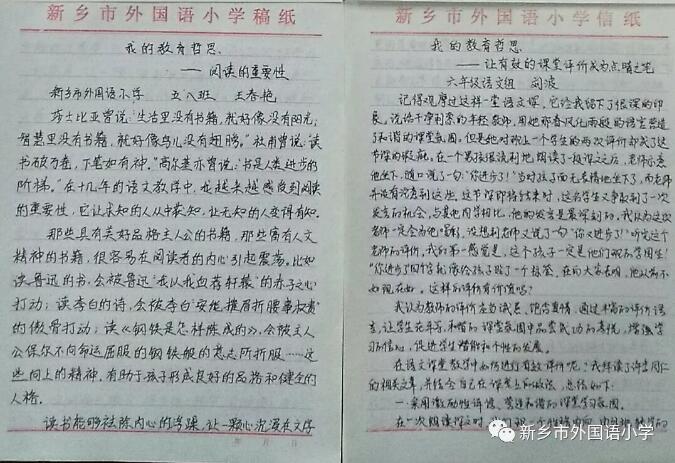 新乡市外国语小学稿纸
我的教育哲思
——阅读的重要性
新乡市外国语小学 五八班 王春艳
莎士比亚曾说:“生活里没有书籍,就好像没有阳光;
智慧里没有书籍,就好像鸟儿没有翅膀。”杜甫曾说:“读
书破万卷,下笔如有神。”高尔基亦曾说:“书是人类进步的
阶梯。”在十几年的语文教学中,我越来越感受到阅读
的重要性,它让求知的人从中获知,让无知的人变得有知。
那些具有美好品格主人公的书籍,那些富有人文
精神的书籍,很容易在阅读者的内心引起震荡。比如
读鲁迅的书,会被鲁迅“我以我血荐轩辕”的赤子之心
打动;读李白的诗,会被李白“安能摧眉折腰事权贵”
的傲骨打动;读《钢铁是怎样炼成的》,会被主人
公保尔不向命运屈服的钢铁般的意志所折服……这
些向上的精神,有助于孩子形成良好的品格和健全的
人格。
读书能够祛除内心的浮躁,让一颗心沉浸在文字
新乡市外国语小学信纸
我的教育哲思
——让有效的课堂评价成为点睛之笔
六年级语文组
记得观摩过这样一堂语文课,它给我留下了很深的印
象。说话干净利索的年轻教师,用她那春风化雨般的语言营造
了和谐的课堂氛围。但是她对班上一个学生的两次评价却成了这
节课的瑕疵。在一个男孩很流利地朗读了一段课文之后,老师示意
他坐下,随口说了一句:“你进步了!”当时孩子面无表情地坐下了,而老师
并没有注意到这些。这节课即将结束时,这名学生又争取到了一次
发言的机会,与其他同学相比,他的发言是最深刻的,我认为这次
老师一定会为他喝彩,没想到老师又说了一句:“你又进步了!”听完这个
老师的评价,我的第一感觉是,这个孩子一定是他们班的学困生!
“你进步了”四个字就像给孩子贴了一个标签,在向大家表明,他从前不
如现在好。这样的评价有价值吗?
我认为教师的评价应当诚恳、饱含真情,通过丰富的评价语
言,让学生在平等、和谐的课堂氛围中品尝成功的喜悦,增强学
习的信心,促进学生潜能和个性的发展。
在语文课堂教学中如何进行有效评价呢?我拜读了许多同仁
的相关文章,并结合自己在课堂上的做法,总结如下:
一、采用激励性评语,营造和谐的课堂学习氛围。
在一次朗读课文时,
新乡市外国语小学